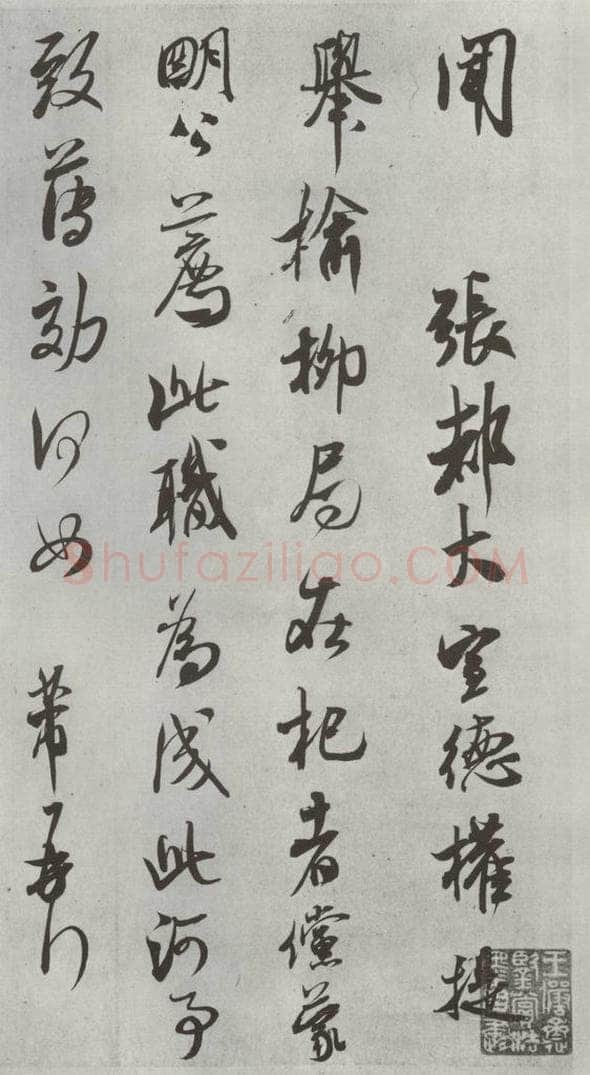 闻 張都大宣德權提
舉榆柳局在杞者儻蒙
明公薦此職為成此河事
致薄效何如 芾再行
Shufaziliao.COM